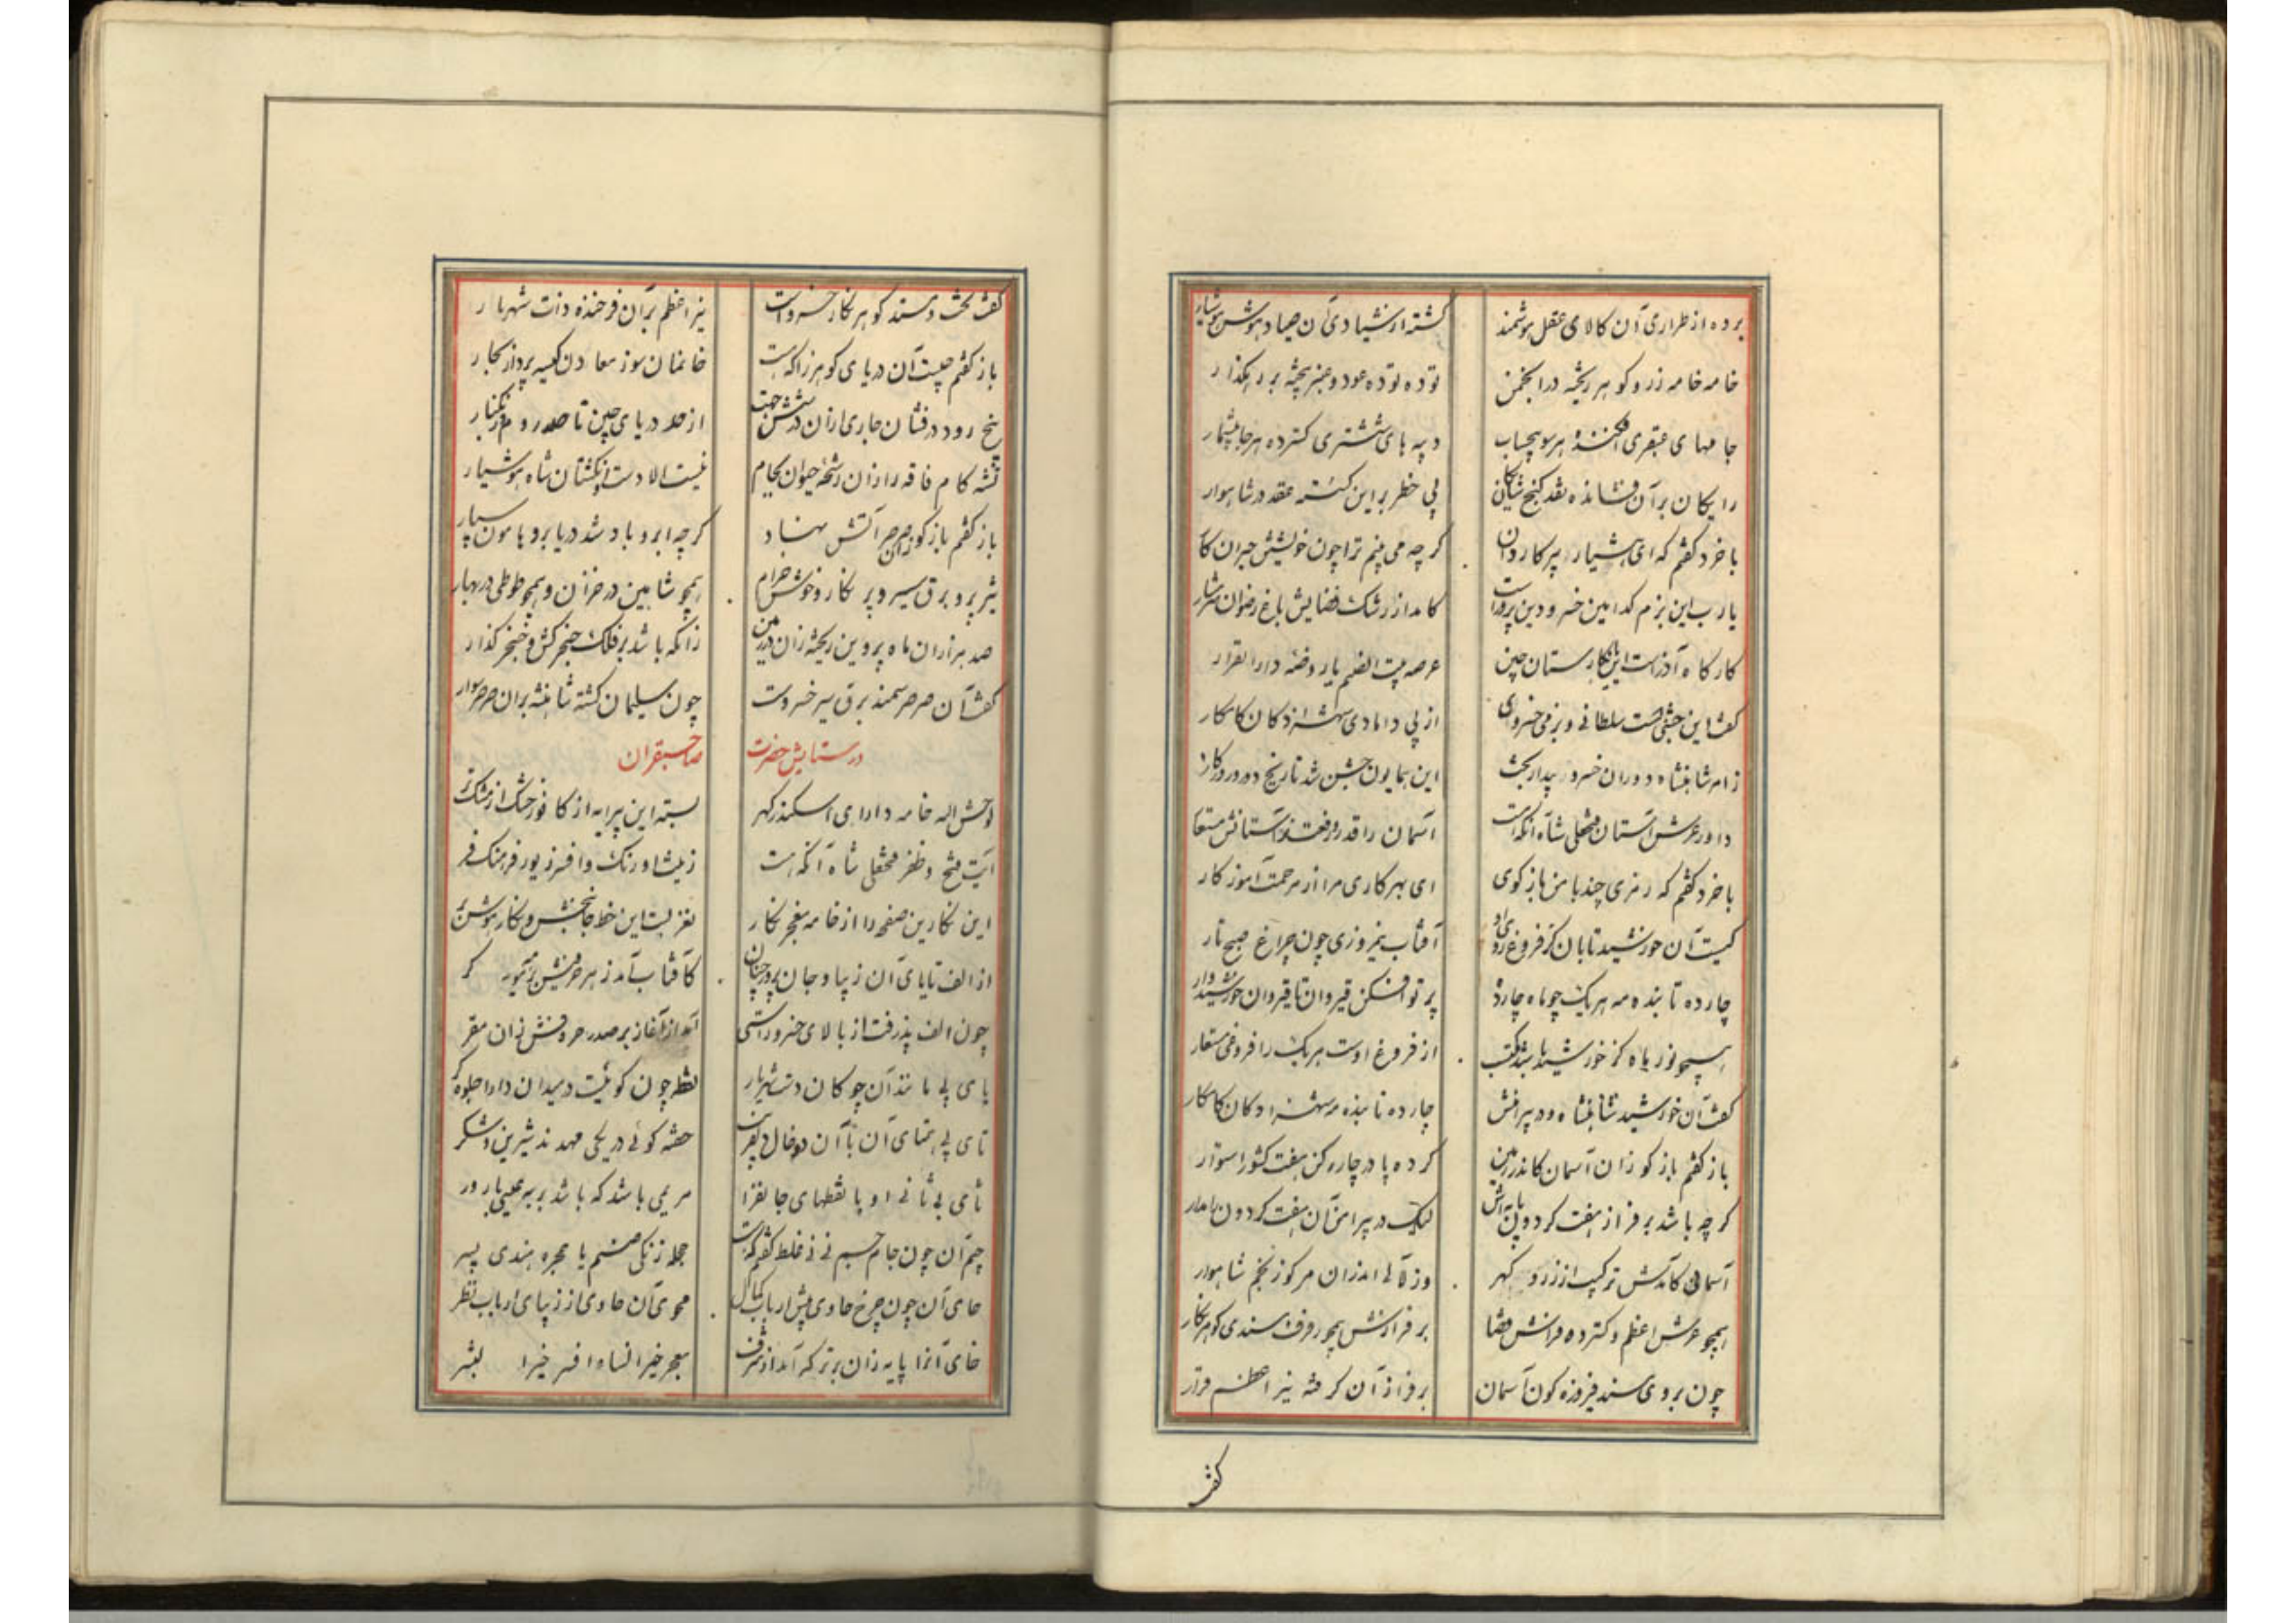 برده از طراری آن کالای عقل هوشمند گشته از شیادی آن صیاد هوش هوشیار
خامه خامه زر و گوهر ریخته در انجمن توده توده عود و عنبر بیخته بر رهگذار
جامهای عبقری افکنده هر سو بیحساب دیبه های ششتری گسترده هر جا بیشمار
رایگان بر آن فشانده نقد گنج شایگان بی خطر بر این عقد در شاهوار
با خرد گفتم که ای هشیار پیر کاردان گرچه می بینم ترا چون خویشتن حیران کار
یا رب این بزم کدامین خسرو دین پرور است کامد از رشک فضایش باغ رضوان شرمسار
کارگاه آذر است این یا نگارستان چین عرصه بیت الصنم یا روضه دارالقرار
گفت این جشنی است سلطانی و بزمی خسروی از پی دامادی شهزادگان کامکار
ز امر شاهنشاه دوران خسرو بیدار بخت این همایون جشن شد تاریخ دور روزگار
داور عرش آستان فتحعلی شاه آنکه هست آسمان را قدر و رفعت ز آستانش مستعار
با خرد گفتم که رمزی چند با من باز گوی ای بهر کاری مرا از مرحمت آموزگار
کیست آن خورشید تابان کز فروغ روی او آفتاب نیمروزی چون چراغ صبح تار
چارده تابنده مه هر یک چو ماه چارده پرتو افکن قیروان تا قیروان خورشید وار
همچو نور ماه کز خورشید باشد مکتسب از فروغ اوست هر یک را فروغی مستعار
گفت آن خورشید شاهنشاه و در پیرامنش چارده تابنده مه شهزادگان کامکار
باز گفتم باز گو زان آسمان کاندر زمین کرده پا در چار رکن هفت کشور استوار
گرچه باشد بر فراز هفت گردون پایه اش لیک در پیرامن آن هفت گردون را مدار
آسمانی کامدش ترکیب از زر و گهر وز لآلی اندر آن مرکوز نجم شاهوار
همچو عرش اعظم و گسترده فراش قضا بر فرازش همچو رفرف مسندی گوهر نگار
چون بروی مسند فیروزه گون آسمان بر فراز آن گرفته نیر اعظم قرار
گفت
گفت تخت و مسند گوهر نگار خسرو است نیر اعظم بر آن فرخنده ذات شهریار
باز گفتم چیست آن دریای گوهرزا که هست خانمان سوز معادن کیسه پرداز بحار
پنج رود درفشان جاری از آن در شش جهت از حد دریای چین تا حد روم و زنگبار
تشنه کام فاقه را زان رشحه حیوان بکام نیست الا دست و انگشتان شاه هوشیار
باز گفتم باز گو زان صرصر آتش نهاد گرچه ابر و باد شد دریا بر و هامون سپار
تیز پر و برق سیر و پر نگار و خوش خرام همچو شاهین در خزان و همچو طوطی در بهار
صد هزاران ماه پروین ریخته زان در زمین زانکه باشد بر فلک خنجر کش و خنجر گذار
گفت آن صرصر سمند برق سیر خسرو است چون سلیمان گشته شاهنشه بر آن صرصر سوار
در ستایش حضرت صاحبقران
لوحش الله خامه دارای اسکندر گهر بسته این پیرایه از کافور خشک از مشک تر
آیت فتح و ظفر فتحعلی شاه آنکه هست زینت اورنگ و افسر زیور فرهنگ و فر
این نگارین صفحه را از خامه معجز نگار نغز بست این خط جانبخش و نگار هوش بر
از الف تا یای آن زیبا و جان پرور چنان کآفتاب آمد ز هر حرفیش بر تیر گر
چون الف پذرفت از بالای خسرو راستی آمد از آغاز بر صدر حروفش زان مقر
بای بی مانند آن چوگان دست شهریار نقطه چون گوئیست در میدان دارا جلوه گر
تای بی همتای آن با آن دو خال دلفریب گوئی در یکی مهدند شیرین و شکر
ثای بی ثانی او با نقطهای جانفزا مریمی باشد که باشد بر عیسی بارور
جیم آن چون جام جم نی نی غلط گفتم که هست حجله زنگی صنم یا حجره هندی پسر
حای آن چون چرخ حاوی پیش ارباب کمال محوی آن حاوی از زیبای ارباب نظر
خای آنرا پایه زان برتر که آمد از شرف معجر خیر النسا و افسر خیر البشر